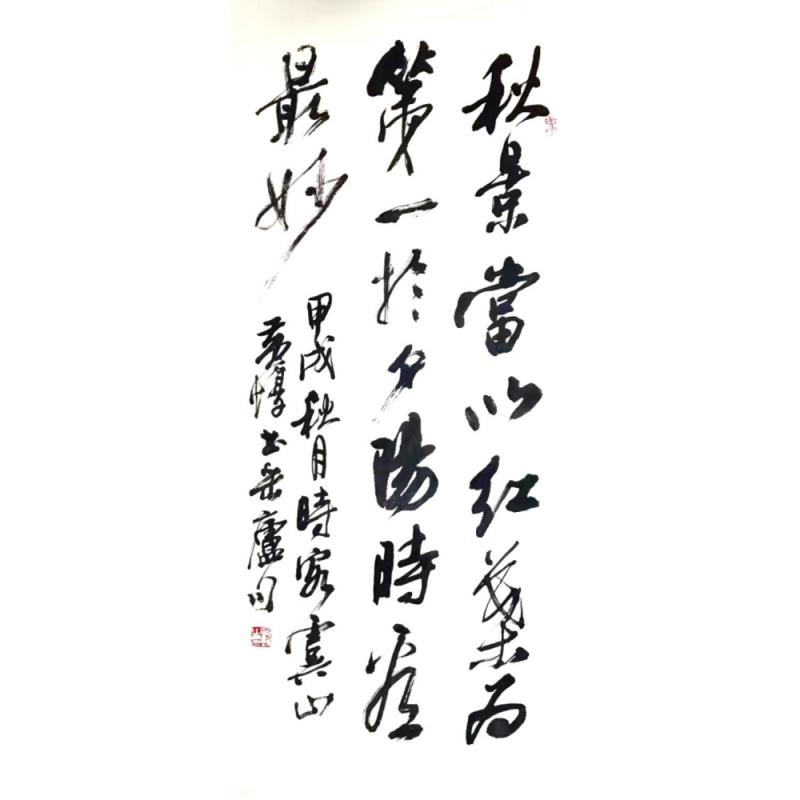 秋景當以紅葉為
第一於夕陽時看
最妙
甲戌秋月時客虞山
黃惇書於廬同